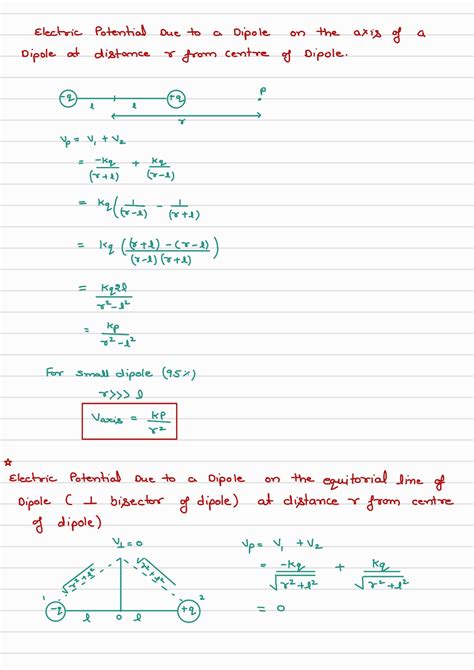 Electric Potential Due to a Dipole on the axis of a
Dipole at distance r from centre of Dipole.
-q +q P
l l
r
Vp = V₁ + V₂
= -kq/(r+l) + kq/(r-l)
= kq(1/(r-l) - 1/(r+l))
= kq ((r+l)-(r-l)/(r-l)(r+l))
= kq2l/r²-l²
= kp/r²-l²
For small dipole (95%)
r>>> l
Vaxis = kp/r²
☆
Electric Potential Due to a Dipole on the equitorial line of
Dipole ( ⊥ bisector of dipole) at distance r from centre
of dipole)
V⊥=0
√r²+l² √r²+l²
1 2
-q l O l +q
Vp= V₁ + V₂
= -kq/√r²+l² + kq/√r²+l²
= 0